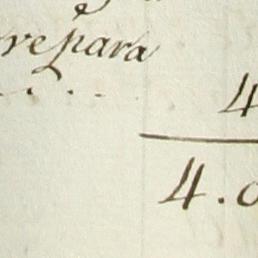 repara
. . . . 4
4.0